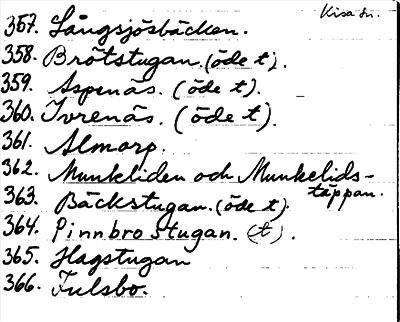 Kisa sn.
357. Långsjösbäcken.
358. Brötstugan. (öde t).
359. Aspenäs. (öde t).
360. Ivrenäs. (öde t).
361. Almorp.
362. Munkeliden och Munkelids-
täppan.
363. Bäckstugan. (öde t).
364. Pinnbrostugan. (t).
365. Hagstugan
366. Fulsbo.